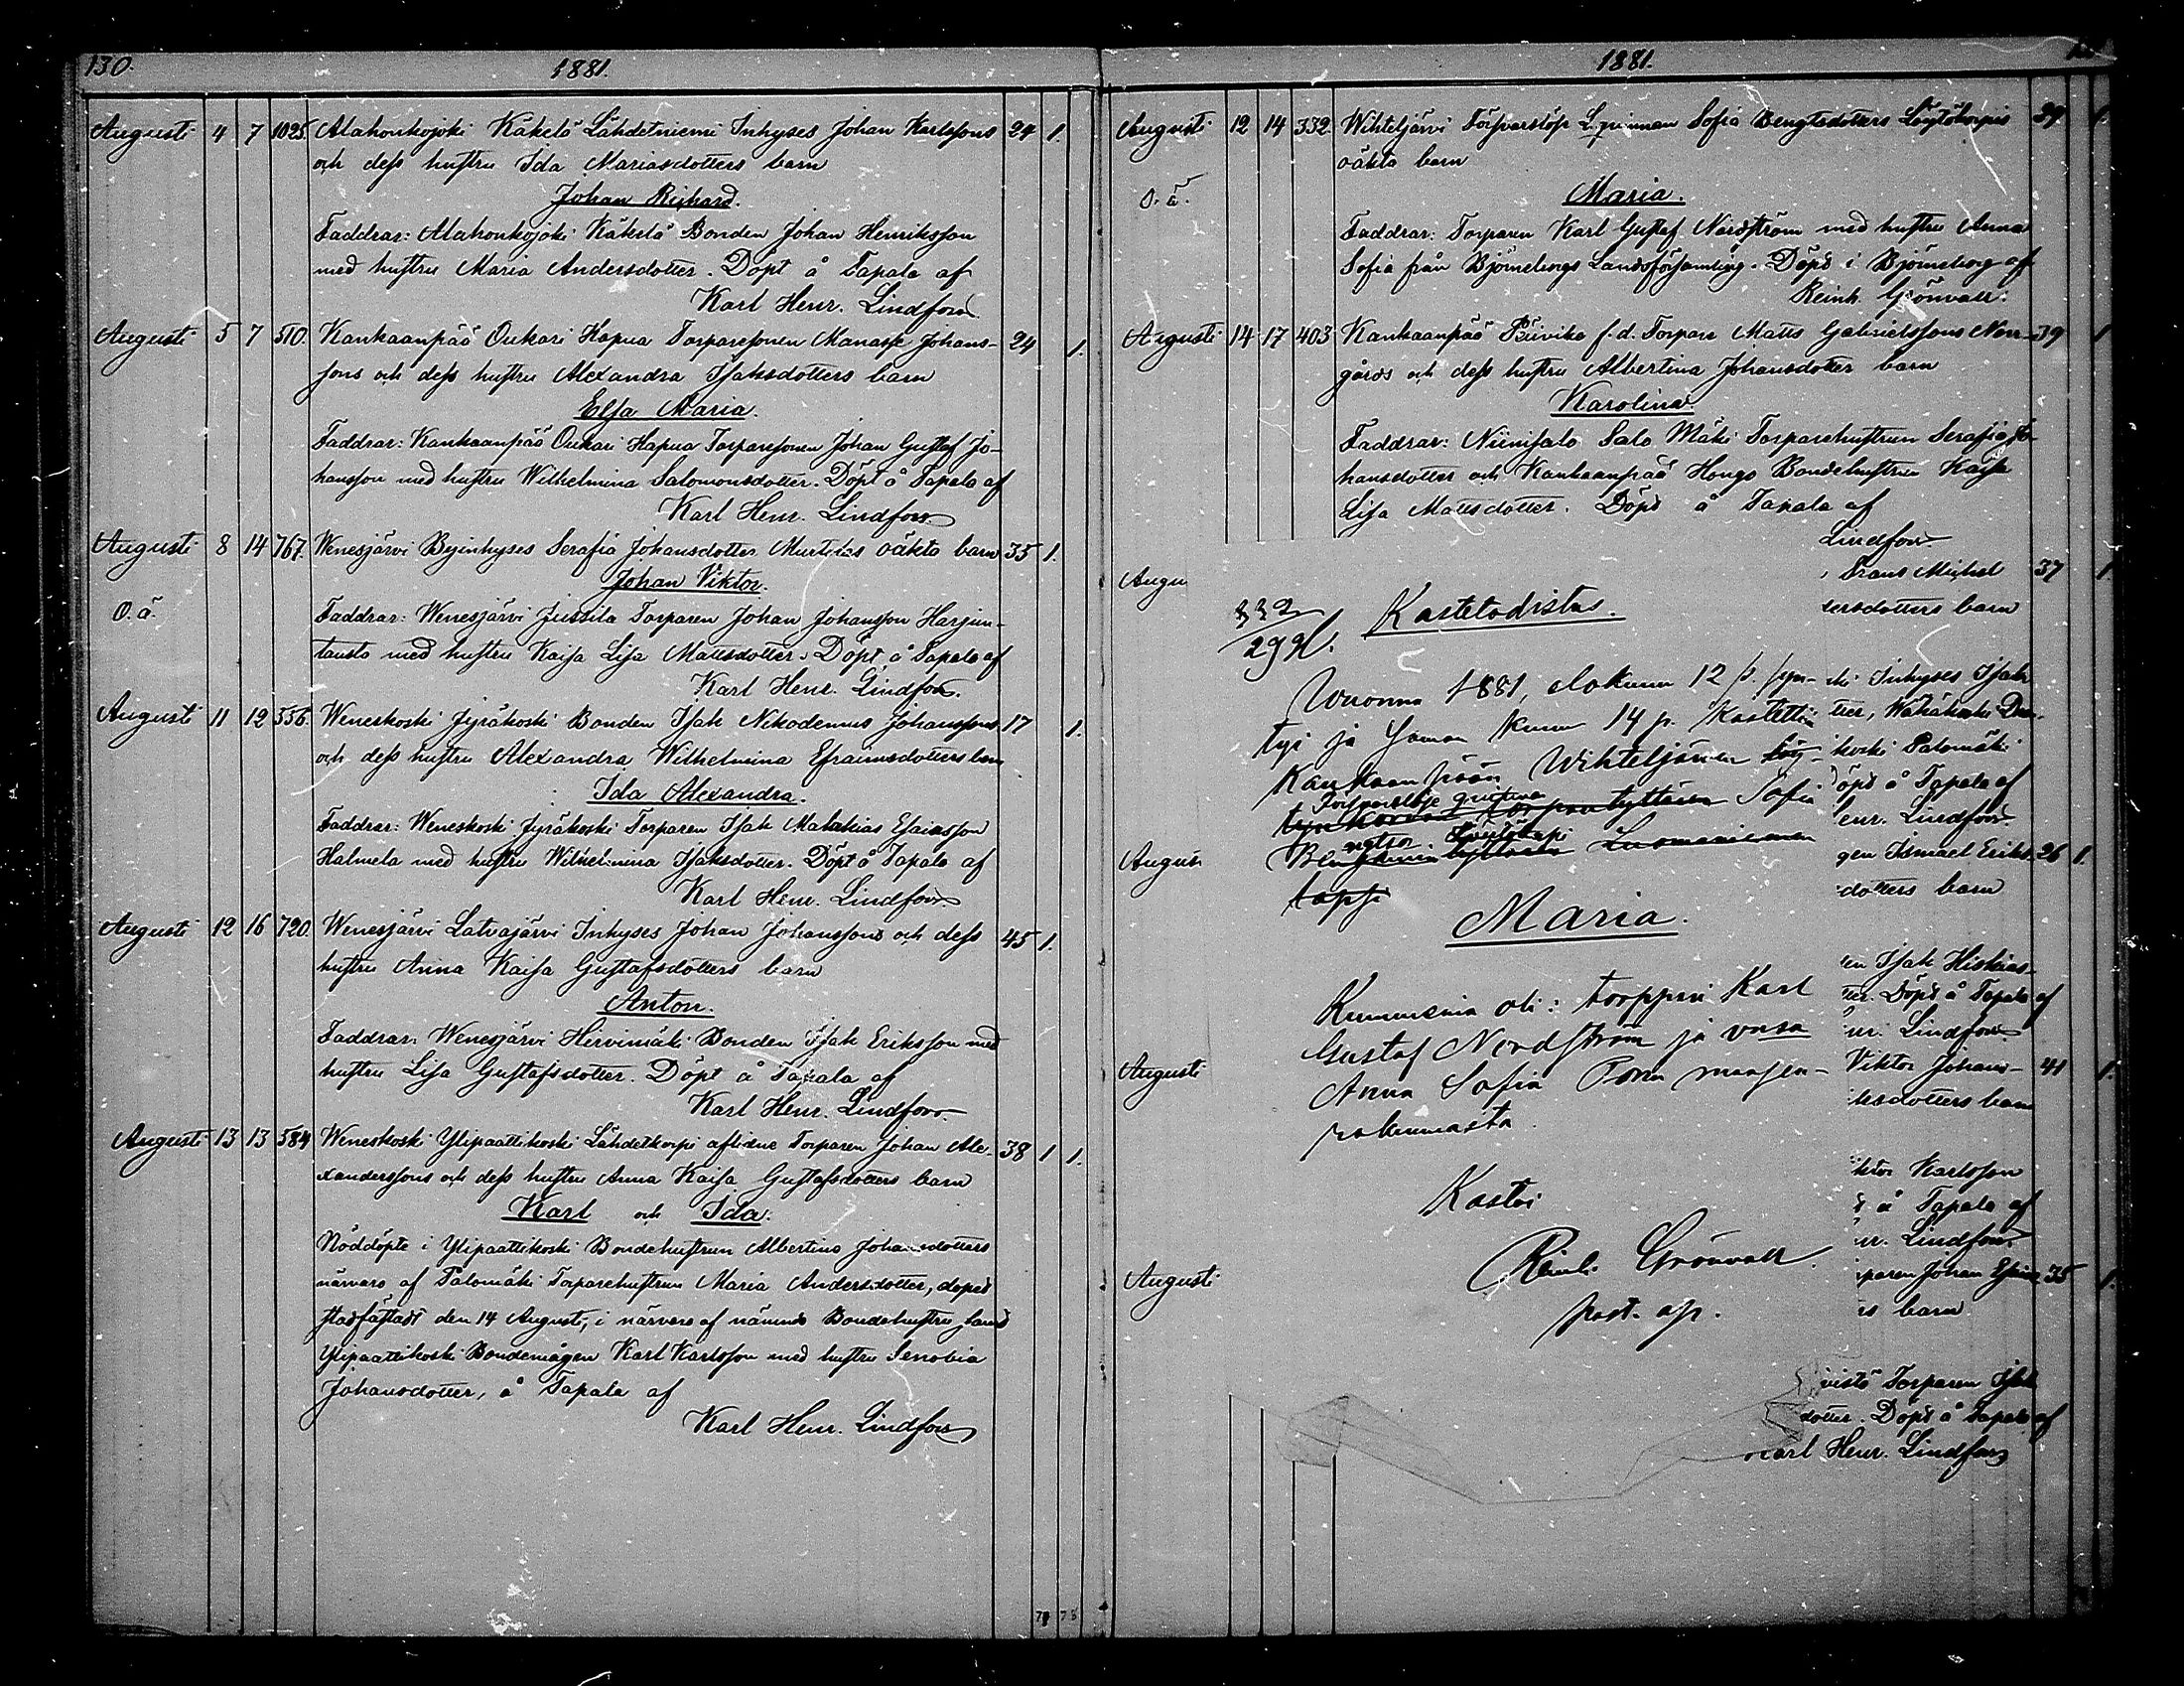 130.
1881.
Augusti 4 7 1025. Alahonkojoki Käkelä Lähdetniemi Inhyses Johan Karlssons 24 1.
och dess hustru Ida Mariasdotters barn
Johan Richard.
Faddrar: Alahonkojoki Käkelä Bonden Johan Henriksson
med hustru Maria Andersdotter. Döpt å Tapala af
Karl Henr. Lindfors.
Augusti 5 7 510. Kankaanpää Oukari Hapua Torparesonen Manasse Johans- 24 1.
sons och dess hustru Alexandra Isaksdotters barn
Elsa Maria.
Faddrar: Kankaanpää Oukari Hapua Torparesonen Johan Gustaf Jo-
hansson med hustru Wilhelmina Salomonsdotter. Döpt å Tapala af
Karl Henr. Lindfors.
Augusti 8 14 767. Wenesjärvi Byinhyses Serafia Johansdotter oäkta barn 35 1.
Johan Viktor.
O.ä.
Faddrar: Wenesjärvi Jussila Torparen Johan Johansson Harjun-
tausta med hustru Kaisa Lisa Mattsdotter. Döpt å Tapala af
Karl Henr. Lindfors.
Augusti 11 12 556. Weneskoski Jyräkoski Bonden Isak Nikodemus Johanssons 17 1.
och dess hustru Alexandra Wilhelmina Efraimsdotters barn
Ida Alexandra.
Faddrar: Weneskoski Jyräkoski Torparen Isak Malakias Esaiasson
Halmela med hustru Wilhelmina Isaksdotter. Döpt å Tapala af
Karl Henr. Lindfors.
Augusti 12 16 720. Wenesjärvi Latvajärvi Inhyses Johan Johanssons och dess 45 1.
hustru Anna Kaisa Gustafsdotters barn
Anton.
Faddrar: Wenesjärvi Hirvimäki Bonden Isak Eriksson med
hustru Lisa Gustafsdotter. Döpt å Tapala af
Karl Henr. Lindfors.
Augusti 13 13 584 Weneskoski Ylipaattikoski Lähdetkorpi aflidne Torparen Johan Ale- 38 1 1.
xanderssons och dess hustru Anna Kaisa Gustafsdotters barn
Karl och Ida.
Nöddöpte i Ylipaattikoski Bondehustrun Albertina Johansdotters
närvaro af Palomäki Torparehustrun Maria Andersdotter, dopet
stadfästadt den 14 Augusti, i närvaro af nämnde Bondehustru samt
Ylipaattikoski Bondemågen Karl Karlsson med hustru Senobia
Johansdotter, å Tapala af
Karl Henr. Lindfors
1881.
Augusti 12 14 332. Wihteljärvi Försvarslösa qvinnan Sofia Bengtsdotters Löytökorpis 29 1.
oäkta barn
O.ä.
Maria.
Faddrar: Torparen Karl Gustaf Nordström med hustru Anna
Sofia från Björneborgs Landsförsamling. Döpt i Björneborg af
Reinh. Grönvall.
Augusti 14 17 403 Kankaanpää Päivike f.d. Torpare Matts Gabrielssons Norr- 39 1
gårds och dess hustru Albertina Johansdotter barn
Karolina
Faddrar: Niinisalo Salo Mäki Torparehustrun Serafia Jo-
hansdotter och Kankaanpää Hongo Bondehustrun Kaisa
Lisa Mattsdotter. Döpt å Tapala af
Lindfors.
Augu Frans Michel 37 1
ersdotters barn
332
Kastetodistus.
29
Wuonna 1881, elokuun 12 p. syn-
tyi ja saman kuun 14 p. kastettiin
Kankaanpään Wihteljärven
Försvarslösa qvinnan
Sofia
Be ngtsd. Löytökorpi
Maria.
Kummina oli: torppari Karl
Gustaf Nordström ja vaimo
Anna Sofia Porin maaseu-
rakunnasta
Kastoi
Reinh. Grönvall.
past. apr.
ki Inhyses Isak
koski Palomäki
Döpt å Tapala af
enr. Lindfors.
Augus gen Ismael Eriks 26 1.
dotters barn
en Isak Hiskias-
ter. Döpt å Tapala af
nr. Lindfors.
Augusti Viktor Johans- 41 1.
iksdotters barn
iktor Karlsson
t å Tapala af
nr. Lindfors.
Augusti rparen Johan Efrai 35 1.
rs barn
Torparen Isak
dotter. Döpt å Tapala af
Karl Henr. Lindfors